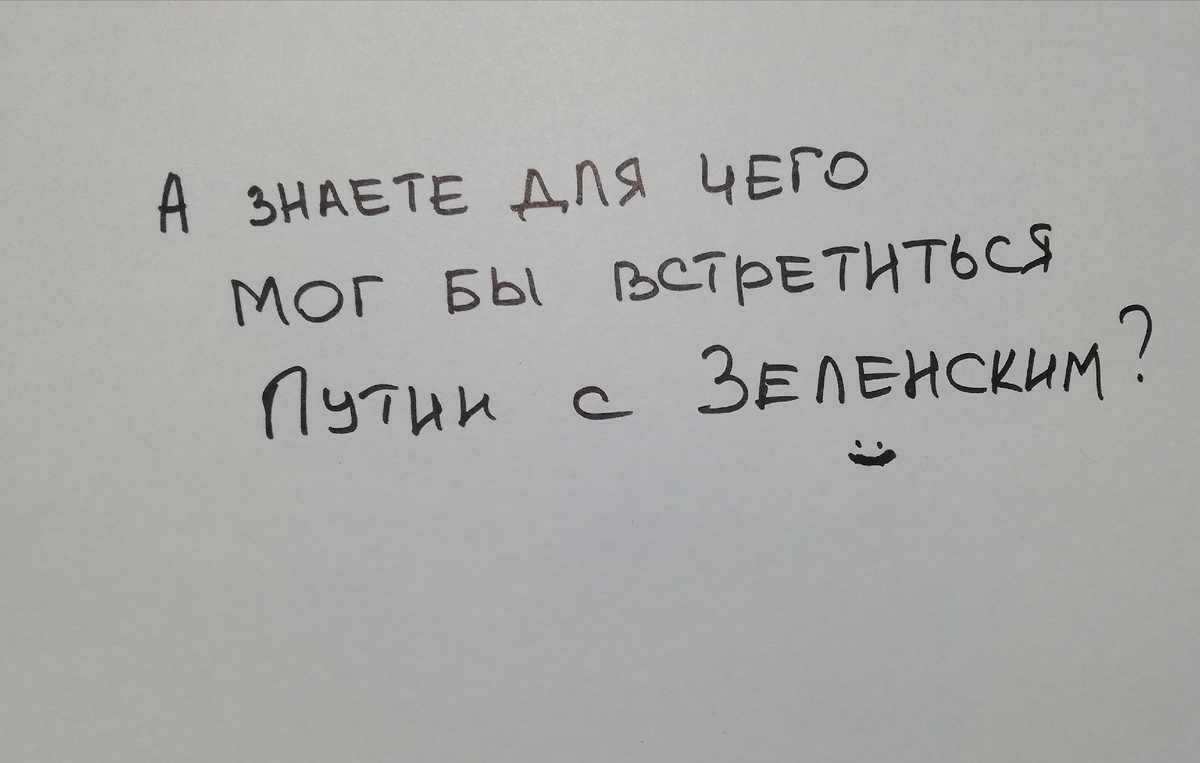 А ЗНАЕТЕ ДЛЯ ЧЕГО
МОГ БЫ ВСТРЕТИТЬСЯ
ПУТИН С ЗЕЛЕНСКИМ?